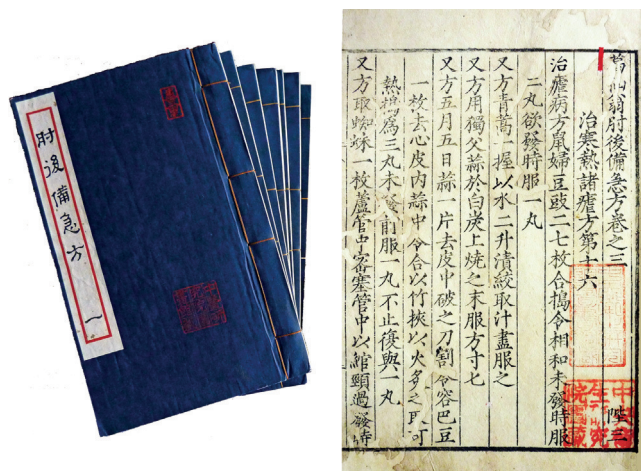 肘後備急方
一
葛仙翁肘後備急方卷之三
治寒熱諸瘧方第十六
治瘧病方鼠婦豆豉二七枚合擣令相和未發時服
二丸欲發時服一丸
又方青蒿一握以水二升漬絞取汁盡服之
又方用獨父蒜於白炭上燒之末服方寸匕
又方五月五日蒜一片去皮中破之刀割令容巴豆
一枚去心皮内蒜中令合以竹挾以火炙之取可
熱擣爲三丸未發前服一丸不止復與一丸
又方取蜘蛛一枚蘆管中密塞管中以綰頸過發時
陛三